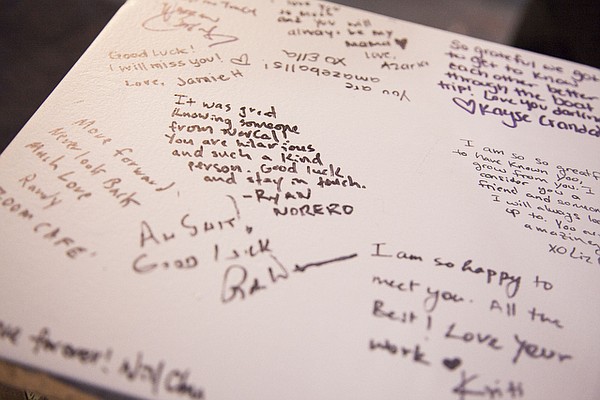 Good luck!
I will miss you! ♡
Love, Jamie H
and you will
always be my
mama ♥
love,
Azaria
You are
amazeballs!
XO Ella
So grateful we got
to get to know
each other better
through the boat
trip! Love you darling
♡ Kayse
It was great
knowing someone
from NorCal!
You are hilarious
and such a kind
person. Good luck
and stay in touch.
- RYAN
NORERO
I am so so
to have known you
grow from you. I
consider you a
friend and
I will always
up to. You
amazing
XO Liz
Move forward,
Never look Back
Much Love
Randy
ROOM CAFE'
Good luck
I am so happy to
meet you. All the
Best! Love your
work ♥
Kriti
forever!